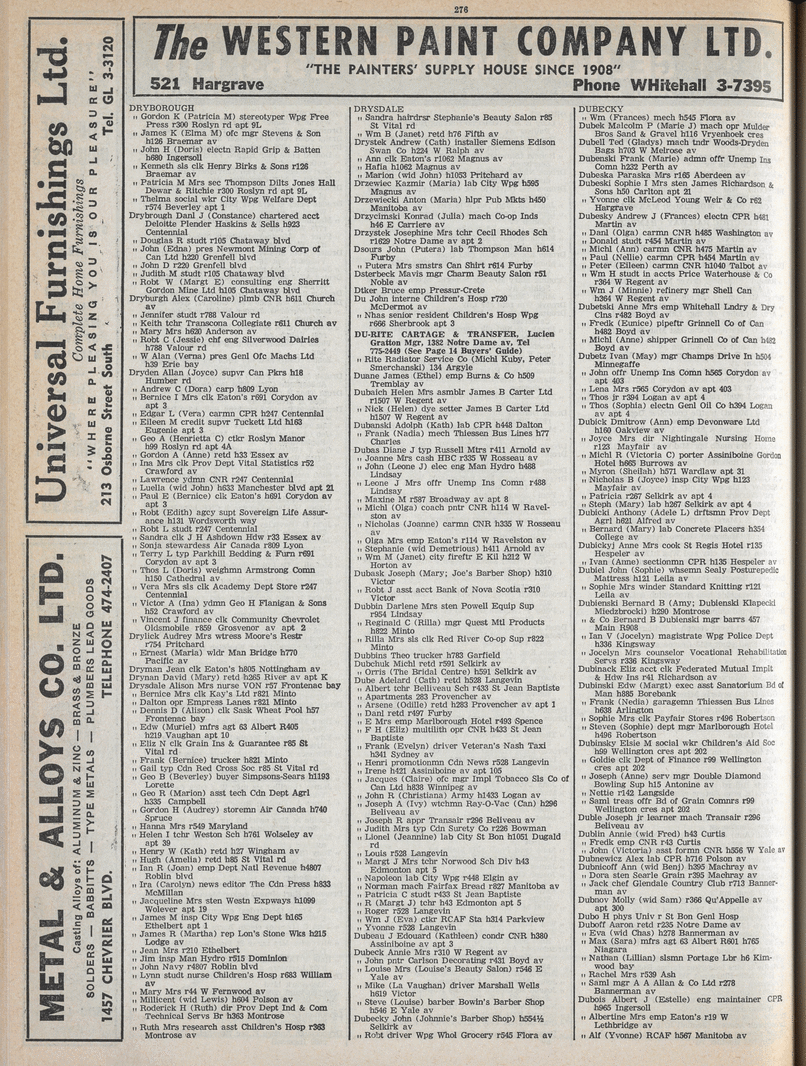 276
The WESTERN PAINT COMPANY LTD.
"THE PAINTERS' SUPPLY HOUSE SINCE 1908"
521 Hargrave Phone WHitehall 3-7395
Universal Furnishings Ltd.
Complete Home Furnishings
"WHERE PLEASING YOU IS OUR PLEASURE"
213 Osborne Street South Tel. GL 3-3120
METAL & ALLOYS CO. LTD.
Casting Alloys of: ALUMINUM & ZINC — BRASS & BRONZE
SOLDERS — BABBITTS — TYPE METALS — PLUMBERS LEAD GOODS
1457 CHEVRIER BLVD. TELEPHONE 474-2407
DRYBOROUGH
" Gordon K (Patricia M) stereotyper Wpg Free
Press r300 Roslyn rd apt 9L
" James K (Elma M) ofc mgr Stevens & Son
h126 Braemar av
" John H (Doris) electn Rapid Grip & Batten
h680 Ingersoll
" Kenneth sls clk Henry Birks & Sons r126
Braemar av
" Patricia M Mrs sec Thompson Dilts Jones Hall
Dewar & Ritchie r300 Roslyn rd apt 9L
" Thelma social wkr City Wpg Welfare Dept
r574 Beverley apt 1
Drybrough Danl J (Constance) chartered acct
Deloitte Plender Haskins & Sells h923
Centennial
" Douglas R studt r105 Chataway blvd
" John (Edna) pres Newmont Mining Corp of
Can Ltd h220 Grenfell blvd
" John D r220 Grenfell blvd
" Judith M studt r105 Chataway blvd
" Robt W (Margt E) consulting eng Sherritt
Gordon Mine Ltd h105 Chataway blvd
Dryburgh Alex (Caroline) plmb CNR h611 Church
av
" Jennifer studt r788 Valour rd
" Keith tchr Transcona Collegiate r611 Church av
" Mary Mrs h620 Anderson av
" Robt C (Jessie) chf eng Silverwood Dairies
h788 Valour rd
" W Alan (Verna) pres Genl Ofc Machs Ltd
h39 Erie bay
Dryden Allan (Joyce) supvr Can Pkrs h18
Humber rd
" Andrew C (Dora) carp h809 Lyon
" Bernice I Mrs clk Eaton's r691 Corydon av
apt 3
" Edgar L (Vera) carmn CPR h247 Centennial
" Eileen M credit supvr Tuckett Ltd h163
Eugenie apt 3
" Geo A (Henrietta C) ctkr Roslyn Manor
h99 Roslyn rd apt 4A
" Gordon A (Anne) retd h33 Essex av
" Ina Mrs clk Prov Dept Vital Statistics r52
Crawford av
" Lawrence ydmn CNR r247 Centennial
" Luella (wid John) h633 Manchester blvd apt 21
" Paul E (Bernice) clk Eaton's h691 Corydon av
apt 3
" Robt (Edith) agcy supt Sovereign Life Assur-
ance h131 Wordsworth way
" Robt L studt r247 Centennial
" Sandra clk J H Ashdown Hdw r33 Essex av
" Sonja stewardess Air Canada r809 Lyon
" Terry L typ Parkhill Bedding & Furn r691
Corydon av apt 3
" Thos L (Doris) weighmn Armstrong Comn
h150 Cathedral av
" Vera Mrs sls clk Academy Dept Store r247
Centennial
" Victor A (Ina) ydmn Geo H Flanigan & Sons
h52 Crawford av
" Vincent J finance clk Community Chevrolet
Oldsmobile r859 Grosvenor av apt 2
Drylick Audrey Mrs wtress Moore's Restr
r754 Pritchard
" Ernest (Maria) wldr Man Bridge h770
Pacific av
Dryman Jean clk Eaton's h805 Nottingham av
Drynan David (Mary) retd h265 River av apt K
Drysdale Alison Mrs nurse VON r57 Frontenac bay
" Bernice Mrs clk Kay's Ltd r821 Minto
" Dalton opr Empress Lanes r821 Minto
" Dennis D (Alison) clk Sask Wheat Pool h57
Frontenac bay
" Edw (Muriel) mfrs agt 63 Albert R405
h219 Vaughan apt 10
" Eliz N clk Grain Ins & Guarantee r85 St
Vital rd
" Frank (Bernice) trucker h821 Minto
" Gail typ Cdn Red Cross Soc r85 St Vital rd
" Geo B (Beverley) buyer Simpsons-Sears h1193
Lorette
" Geo R (Marion) asst tech Cdn Dept Agri
h335 Campbell
" Gordon H (Audrey) storemn Air Canada h740
Spruce
" Hanna Mrs r549 Maryland
" Helen I tchr Weston Sch h761 Wolseley av
apt 39
" Henry W (Kath) retd h27 Wingham av
" Hugh (Amelia) retd h85 St Vital rd
" Ian R (Joan) emp Dept Natl Revenue h4807
Roblin blvd
" Ira (Carolyn) news editor The Cdn Press h833
McMillan
" Jacqueline Mrs sten Westn Expways h1099
Wolever apt 19
" James M insp City Wpg Eng Dept h165
Ethelbert apt 1
" James R (Martha) rep Lon's Stone Wks h215
Lodge av
" Jean Mrs r210 Ethelbert
" Jim insp Man Hydro r515 Dominion
" John Navy r4807 Roblin blvd
" Lynn studt nurse Children's Hosp r683 William
av
" Mary Mrs r44 W Fernwood av
" Millicent (wid Lewis) h604 Polson av
" Roderick H (Ruth) dir Prov Dept Ind & Com
Technical Servs Br h363 Montrose
" Ruth Mrs research asst Children's Hosp r363
Montrose av
DRYSDALE
" Sandra hairdrsr Stephanie's Beauty Salon r85
St Vital rd
" Wm B (Janet) retd h76 Fifth av
Drystek Andrew (Cath) installer Siemens Edison
Swan Co h224 W Ralph av
" Ann clk Eaton's r1062 Magnus av
" Hafia h1062 Magnus av
" Marion (wid John) h1053 Pritchard av
Drzewiec Kazmir (Maria) lab City Wpg h595
Magnus av
Drzewiecki Anton (Maria) hlpr Pub Mkts h450
Manitoba av
Drzycimski Konrad (Julia) mach Co-op Inds
h46 E Carriere av
Drzystek Josephine Mrs tchr Cecil Rhodes Sch
r1629 Notre Dame av apt 2
Dsours John (Putera) lab Thompson Man h614
Furby
" Putera Mrs smstrs Can Shirt r614 Furby
Dsterbeck Mavis mgr Charm Beauty Salon r51
Noble av
Dtker Bruce emp Pressur-Crete
Du John interne Children's Hosp r720
McDermot av
" Nhas senior resident Children's Hosp Wpg
r666 Sherbrook apt 3
DU-RITE CARTAGE & TRANSFER, Lucien
Gratton Mgr, 1382 Notre Dame av, Tel
775-2449 (See Page 14 Buyers' Guide)
" Rite Radiator Service Co (Michl Kuby, Peter
Smerchanski) 134 Argyle
Duane James (Ethel) emp Burns & Co h509
Tremblay av
Dubaich Helen Mrs asmblr James B Carter Ltd
r1507 W Regent av
" Nick (Helen) dye setter James B Carter Ltd
h1507 W Regent av
Dubanski Adolph (Kath) lab CPR h448 Dalton
" Frank (Nadia) mech Thiessen Bus Lines h77
Charles
Dubas Diane J typ Russell Mtrs r411 Arnold av
" Joanne Mrs cash HBC r335 W Rosseau av
" John (Leone J) elec eng Man Hydro h488
Lindsay
" Leone J Mrs offr Unemp Ins Comn r488
Lindsay
" Maxine M r587 Broadway av apt 8
" Michl (Olga) coach pntr CNR h114 W Ravel-
ston av
" Nicholas (Joanne) carmn CNR h335 W Rosseau
av
" Olga Mrs emp Eaton's r114 W Ravelston av
" Stephanie (wid Demetrious) h411 Arnold av
" Wm M (Janet) city fireftr E Kil h212 W
Horton av
Dubask Joseph (Mary; Joe's Barber Shop) h310
Victor
" Robt J asst acct Bank of Nova Scotia r310
Victor
Dubbin Darlene Mrs sten Powell Equip Sup
r954 Lindsay
" Reginald C (Rilla) mgr Quest Mtl Products
h822 Minto
" Rilla Mrs sls clk Red River Co-op Sup r822
Minto
Dubbins Theo trucker h783 Garfield
Dubchuk Michl retd r591 Selkirk av
" Orris (The Bridal Centre) h591 Selkirk av
Dube Adelard (Cath) retd h528 Langevin
" Albert tchr Belliveau Sch r433 St Jean Baptiste
" Apartments 283 Provencher av
" Arsene (Odille) retd h283 Provencher av apt 1
" Danl retd r497 Furby
" E Mrs emp Marlborough Hotel r493 Spence
" F H (Eliz) multilith opr CNR h433 St Jean
Baptiste
" Frank (Evelyn) driver Veteran's Nash Taxi
h341 Sydney av
" Henri promotionmn Cdn News r528 Langevin
" Irene h421 Assiniboine av apt 105
" Jacques (Claire) ofc mgr Impl Tobacco Sls Co of
Can Ltd h838 Winnipeg av
" John R (Christiana) Army h1433 Logan av
" Joseph A (Ivy) wtchmn Ray-O-Vac (Can) h296
Beliveau av
" Joseph R appr Transair r296 Beliveau av
" Judith Mrs typ Cdn Surety Co r226 Bowman
" Lionel (Jeannine) lab City St Bon h1051 Dugald
rd
" Louis r528 Langevin
" Margt J Mrs tchr Norwood Sch Div h43
Edmonton apt 5
" Napoleon lab City Wpg r448 Elgin av
" Norman mach Fairfax Bread r827 Manitoba av
" Patricia C studt r433 St Jean Baptiste
" R (Margt J) tchr h43 Edmonton apt 5
" Roger r528 Langevin
" Wm J (Eva) ctkr RCAF Sta h314 Parkview
" Yvonne r528 Langevin
Dubeau J Edouard (Kathleen) condr CNR h380
Assiniboine av apt 3
Dubeck Annie Mrs r310 W Regent av
" John pntr Carlson Decorating r431 Boyd av
" Louise Mrs (Louise's Beauty Salon) r546 E
Yale av
" Mike (La Vaughan) driver Marshall Wells
h619 Victor
" Steve (Louise) barber Bowin's Barber Shop
h546 E Yale av
Dubecky John (Johnnie's Barber Shop) h554½
Selkirk av
" Robt driver Wpg Whol Grocery r545 Flora av
DUBECKY
" Wm (Frances) mech h545 Flora av
Dubek Malcolm P (Marie J) mach opr Mulder
Bros Sand & Gravel h116 Vryenhoek cres
Dubell Ted (Gladys) mach tndr Woods-Dryden
Bags h703 W Melrose av
Dubenski Frank (Marie) admn offr Unemp Ins
Comn h232 Perth av
Dubeska Paraska Mrs r165 Aberdeen av
Dubeski Sophie I Mrs sten James Richardson &
Sons h50 Carlton apt 21
" Yvonne clk McLeod Young Weir & Co r62
Hargrave
Dubesky Andrew J (Frances) electn CPR h481
Martin av
" Danl (Olga) carmn CNR h485 Washington av
" Donald studt r454 Martin av
" Michl (Ann) carmn CNR h475 Martin av
" Paul (Nellie) carmn CPR h454 Martin av
" Peter (Eileen) carmn CNR h1040 Talbot av
" Wm H studt in accts Price Waterhouse & Co
r364 W Regent av
" Wm J (Minnie) refinery mgr Shell Can
h364 W Regent av
Dubetski Anne Mrs emp Whitehall Lndry & Dry
Clns r482 Boyd av
" Fredk (Eunice) pipeftr Grinnell Co of Can
h482 Boyd av
" Michl (Anne) shipper Grinnell Co of Can h482
Boyd av
Dubetz Ivan (May) mgr Champs Drive In h504
Minnegaffe
" John offr Unemp Ins Comn h565 Corydon av
apt 403
" Lena Mrs r565 Corydon av apt 403
" Thos jr r394 Logan av apt 4
" Thos (Sophia) electn Genl Oil Co h394 Logan
av apt 4
Dubick Dmitrow (Ann) emp Devonware Ltd
h160 Oakview av
" Joyce Mrs dir Nightingale Nursing Home
r123 Mayfair av
" Michl R (Victoria C) porter Assiniboine Gordon
Hotel h665 Burrows av
" Myron (Sheilah) h571 Wardlaw apt 31
" Nicholas B (Joyce) insp City Wpg h123
Mayfair av
" Patricia r267 Selkirk av apt 4
" Steph (Mary) lab h267 Selkirk av apt 4
Dubicki Anthony (Adele L) drftsmn Prov Dept
Agri h621 Alfred av
" Bernard (Mary) lab Concrete Placers h354
College av
Dubickyj Anne Mrs cook St Regis Hotel r135
Hespeler av
" Ivan (Anne) sectionmn CPR h135 Hespeler av
Dubiel John (Sophie) whsemn Sealy Posturepedic
Mattress h121 Leila av
" Sophie Mrs winder Standard Knitting r121
Leila av
Dubienski Bernard B (Amy; Dubienski Klapecki
Miedzbrocki) h290 Montrose
" & Co Bernard B Dubienski mgr barrs 457
Main R908
" Ian V (Jocelyn) magistrate Wpg Police Dept
h336 Kingsway
" Jocelyn Mrs counselor Vocational Rehabilitation
Servs r336 Kingsway
Dubinack Eliz acct clk Federated Mutual Implt
& Hdw Ins r41 Richardson av
Dubinski Edw (Margt) exec asst Sanatorium Bd of
Man h885 Borebank
" Frank (Nedia) garagemn Thiessen Bus Lines
h638 Arlington
" Sophie Mrs clk Payfair Stores r496 Robertson
" Steven (Sophie) dept mgr Marlborough Hotel
h496 Robertson
Dubinsky Elsie M social wkr Children's Aid Soc
h99 Wellington cres apt 202
" Goldie clk Dept of Finance r99 Wellington
cres apt 202
" Joseph (Anne) serv mgr Double Diamond
Bowling Sup h15 Antonine av
" Nettie r142 Langside
" Saml treas offr Bd of Grain Comnrs r99
Wellington cres apt 202
Duble Joseph jr learner mach Transair r296
Beliveau av
Dublin Annie (wid Fred) h43 Curtis
" Fredk emp CNR r43 Curtis
" John (Victoria) asst formn CNR h556 W Yale av
Dubnewicz Alex lab CPR h716 Polson av
Dubnicoff Ann (wid Benj) h395 Machray av
" Dora sten Searle Grain r395 Machray av
" Jack chef Glendale Country Club r713 Banner-
man av
Dubnov Molly (wid Sam) r366 Qu'Appelle av
apt 300
Dubo H phys Univ r St Bon Genl Hosp
Duboff Aaron retd r235 Notre Dame av
" Eva (wid Chas) h278 Bannerman av
" Max (Sara) mfrs agt 63 Albert R601 h765
Niagara
" Nathan (Lillian) slsmn Portage Lbr h6 Kim-
wood bay
" Rachel Mrs r539 Ash
" Saml mgr A A Allan & Co Ltd r278
Bannerman av
Dubois Albert J (Estelle) eng maintainer CPR
h965 Ingersoll
" Albertine Mrs emp Eaton's r19 W
Lethbridge av
" Alf (Yvonne) RCAF h567 Manitoba av